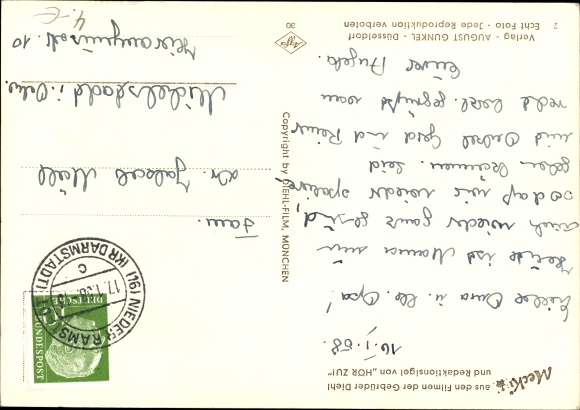 Mecki
aus den Filmen der Gebrüder Diehl
und Redaktionsigel von „HÖR ZU!"
16.I.58.
Liebe Oma u. lb. Opa!
Heute ist Mama nun
auch wieder ganz gesund,
sodaß wir wieder spazieren
gehen können. Seid
mit Onkel Gerd und Reiner
recht herzl. gegrüßt von
Eurer Angela.
Copyright by DIEHL-FILM, MÜNCHEN
(16) NIEDER RAMSTADT
(KR DARMSTADT)
17.1.58
C
DEUTSCHE
BUNDESPOST
10
Fam.
Dr. Jakob
Michelstadt i. Odw.
10
4.-€
Verlag · AUGUST GUNKEL · Düsseldorf
Echt Foto · Jede Reproduktion verboten
2
Agfa
30